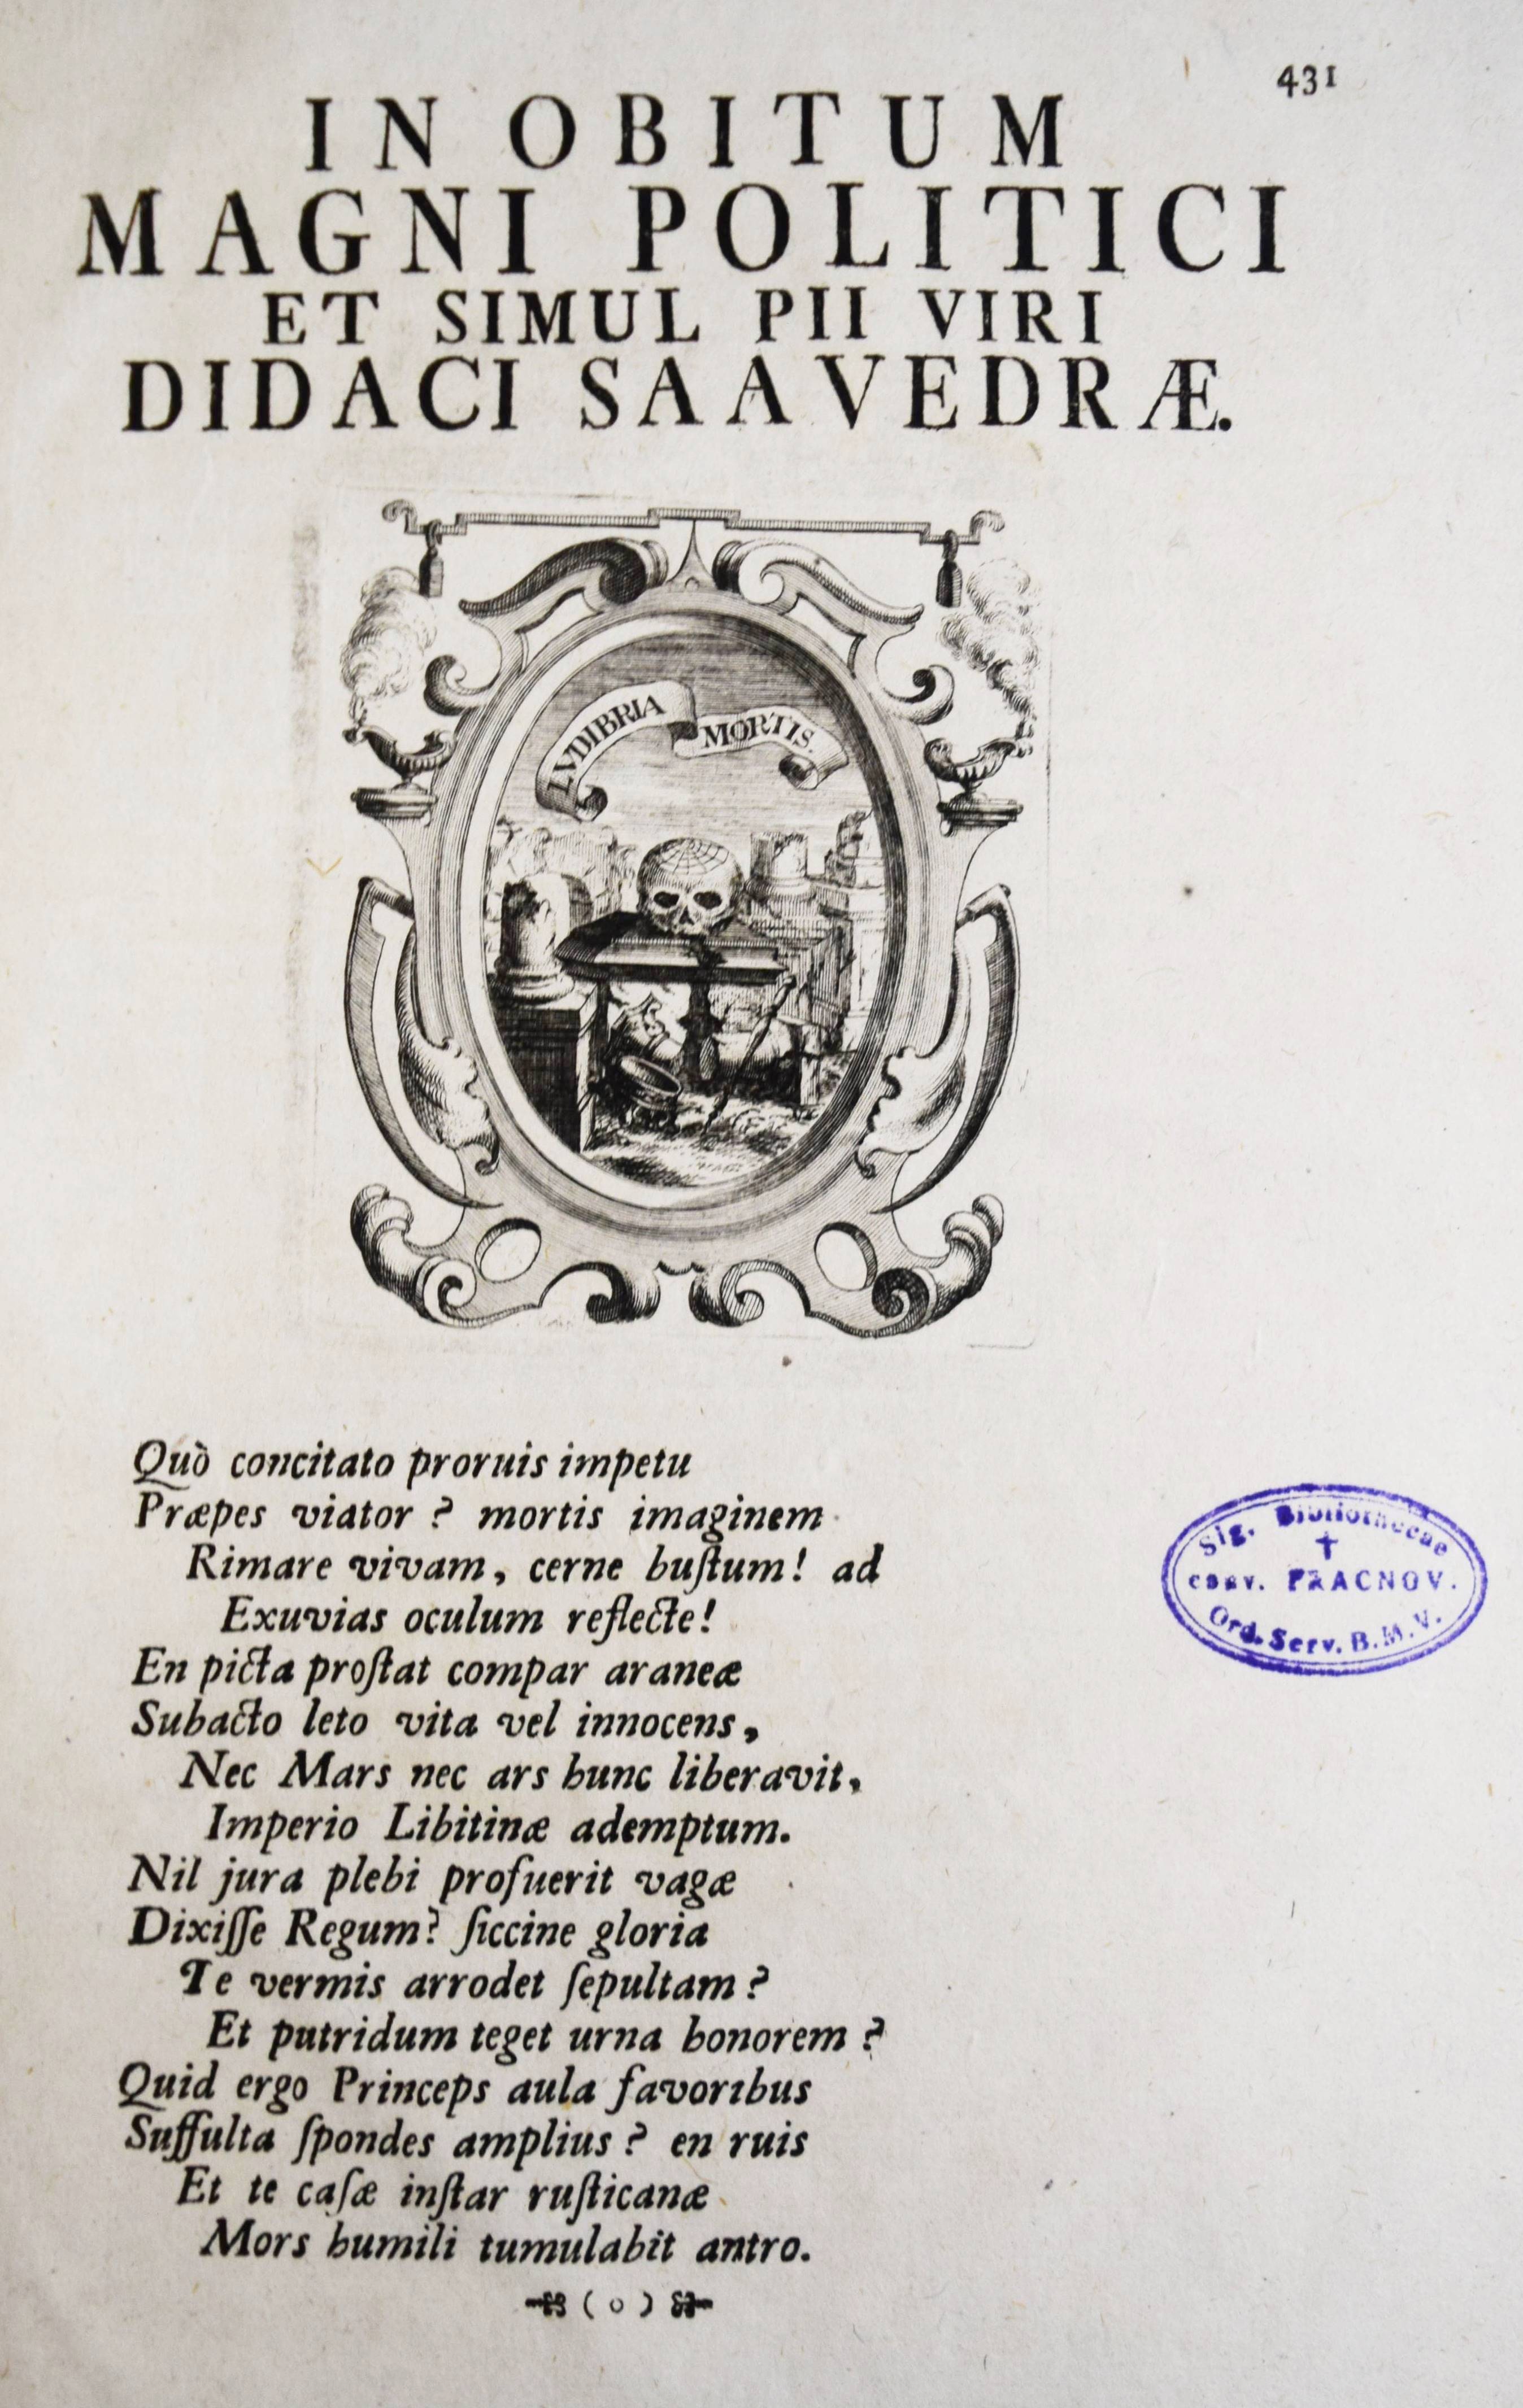 431
IN OBITUM
MAGNI POLITICI
ET SIMUL PII VIRI
DIDACI SAAVEDRÆ.
LVDIBRIA MORTIS.
Quò concitato proruis impetu
Præpes viator? mortis imaginem
Rimare vivam, cerne buſtum! ad
Exuvias oculum reflecte!
En picta proſtat compar araneæ
Subacto leto vita vel innocens,
Nec Mars nec ars hunc liberavit,
Imperio Libitinæ ademptum.
Nil jura plebi profuerit vagæ
Dixiſſe Regum? ſiccine gloria
Te vermis arrodet ſepultam?
Et putridum teget urna honorem?
Quid ergo Princeps aula favoribus
Suffulta ſpondes amplius? en ruis
Et te caſæ inſtar ruſticanæ
Mors humili tumulabit antro.
(o)
Sig. Bibliothecae
conv. FRACNOV.
Ord. Serv. B.M.V.